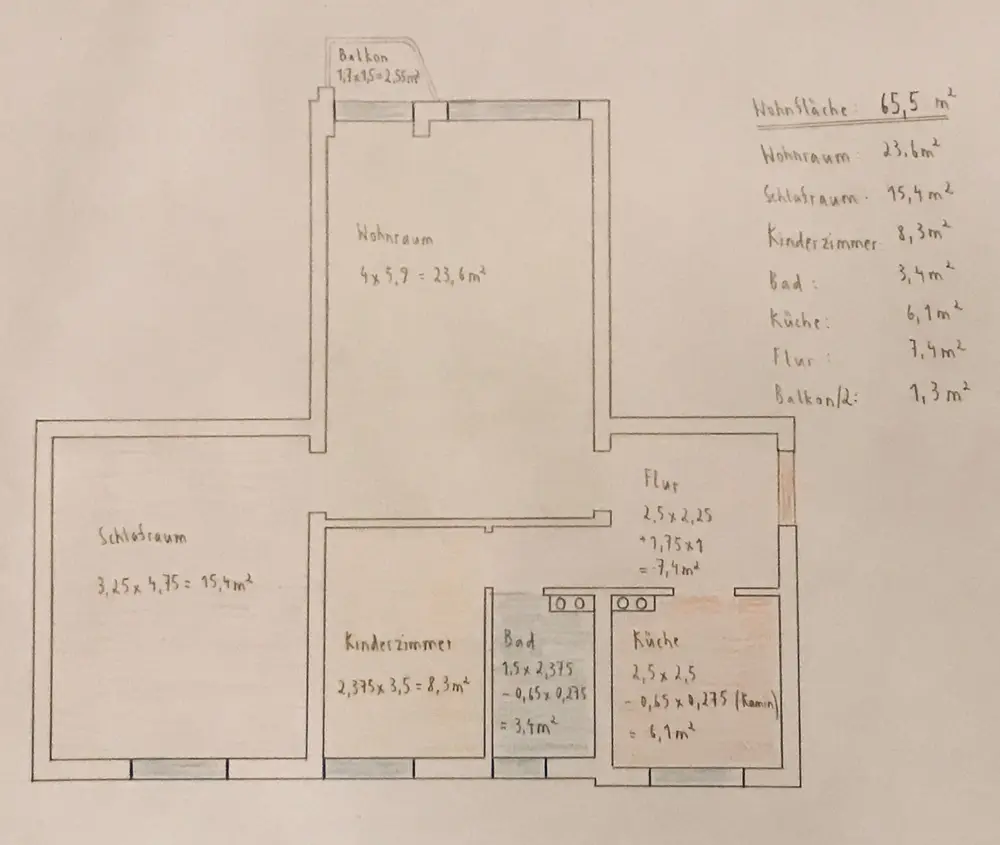 Balkon
1,7x1,5=2,55m²
Wohnfläche: 65,5 m²
Wohnraum: 23,6m²
Schlafraum: 15,4m²
Kinderzimmer: 8,3m²
Bad: 3,4m²
Küche: 6,1m²
Flur: 7,4m²
Balkon/2: 1,3m²
Wohnraum
4x5,9 = 23,6m²
Flur
2,5x2,25
+1,75x1
= 7,4m²
Schlafraum
3,25x4,75= 15,4m²
Kinderzimmer
2,375x3,5=8,3m²
Bad
1,5x2,375
- 0,65x0,275
= 3,4m²
Küche
2,5x2,5
- 0,65x0,275 (Kamin)
= 6,1m²